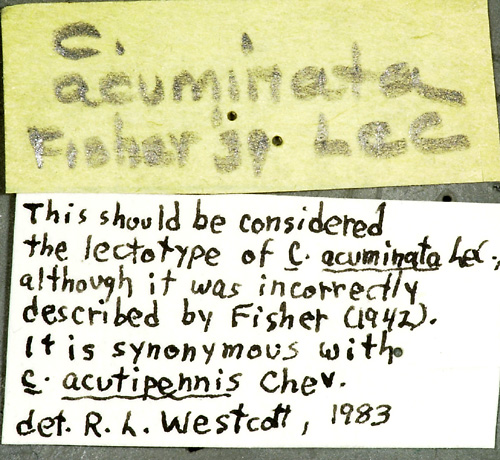 C.
acuminata
Fisher jp. LeC
This should be considered
the lectotype of C. acuminata LeC.,
although it was incorrectly
described by Fisher (1942).
It is synonymous with
C. acutipennis Chev.
det. R. L. Westcott, 1983